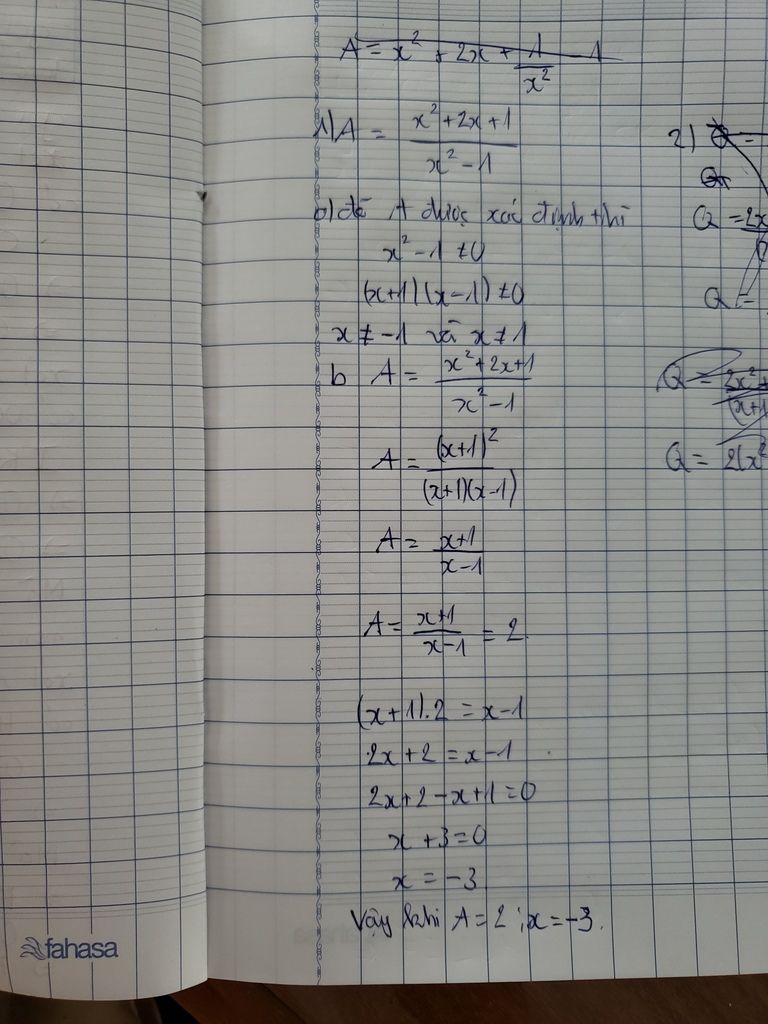 A = x² + 2x + 1/x² - 1
1) A = (x² + 2x + 1)/(x² - 1)
để A được xác định thì
x² - 1 ≠ 0
(x+1)(x-1) ≠ 0
x ≠ -1 và x ≠ 1
b A = (x² + 2x + 1)/(x² - 1)
A = (x+1)²/((x+1)(x-1))
A = (x+1)/(x-1)
A = (x+1)/(x-1) = 2
(x+1).2 = x-1
2x+2 = x-1
2x+2-x+1=0
x+3=0
x = -3
Vậy khi A = 2 ; x = -3.
2) Q =
Q
Q = 2x
Q =
Q = 2x²+/(x+1
Q = 2(x²
fahasa